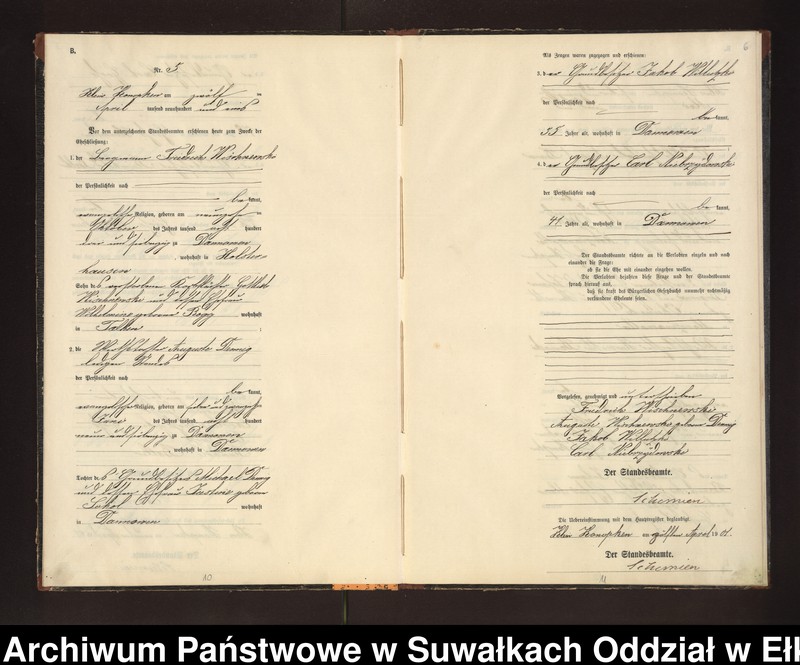 B.
Nr. 5.
Klein Konopken am zwölften
April tausend neunhundert und eins
Vor dem unterzeichneten Standesbeamten erschienen heute zum Zwecke der
Eheschließung:
1. der Bergmann Friedrich Wischnewski
der Persönlichkeit nach
be kannt,
evangelischer Religion, geboren am
Oktober des Jahres tausend acht hundert
drei und siebenzig zu Dannowen
, wohnhaft in Holster-
hausen
Sohn des verstorbenen Gottlieb
Wischnewski und dessen Ehefrau
Wilhelmine geborene wohnhaft
in Talken
2. die Auguste
der Persönlichkeit nach
be kannt,
evangelischer Religion, geboren am
Juni des Jahres tausend acht hundert
neun und siebenzig zu Dannowen
, wohnhaft in Dannowen
Tochter des Grundbesitzers Michael
und dessen Ehefrau geborene
Sokol wohnhaft
in Dannowen
10
6
Als Zeugen waren zugezogen und erschienen:
3. der Grundbesitzer Jakob
der Persönlichkeit nach
be kannt,
55 Jahre alt, wohnhaft in Dannowen
4. der Grundbesitzer Carl Niebrzydowski
der Persönlichkeit nach
be kannt,
41 Jahre alt, wohnhaft in Dannowen
Der Standesbeamte richtete an die Verlobten einzeln und nach
einander die Frage:
ob sie die Ehe mit einander eingehen wollen.
Die Verlobten bejahten diese Frage und der Standesbeamte
sprach hierauf aus,
daß sie kraft des Bürgerlichen Gesetzbuchs nunmehr rechtmäßig
verbundene Eheleute seien.
Vorgelesen, genehmigt und unterschrieben
Friedrich Wischnewski
Auguste Wischnewski geborene
Jakob
Carl Niebrzydowski
Der Standesbeamte.
Schemien
Die Uebereinstimmung mit dem Hauptregister beglaubigt.
Klein Konopken am zwölften April 1901.
Der Standesbeamte.
Schemien
11
Archiwum Państwowe w Suwałkach Oddział w Ełk